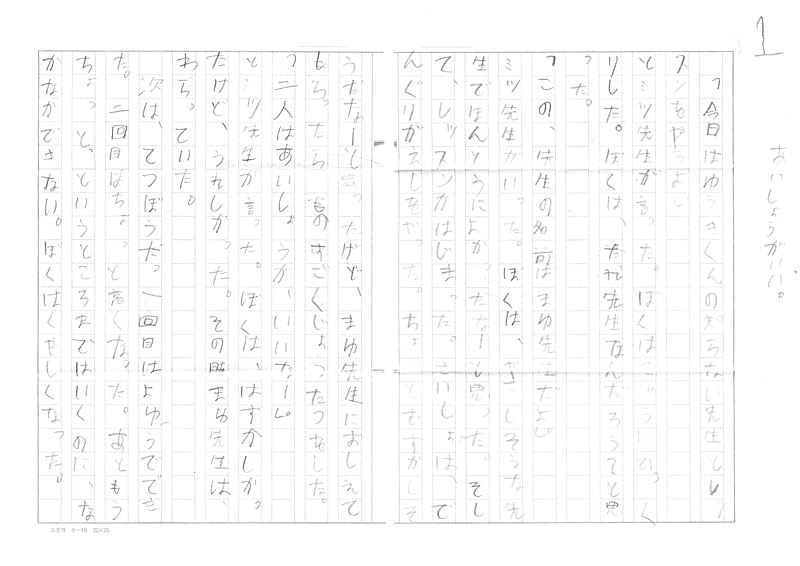 1
あいしょうがいい。
「今日はゆうきくんの知らない先生とレッ
スンをやるよ」
とミツ先生が言った。ぼくはきゅうにびっく
りした。ぼくは、だれ先生なんだろうなと思
った。
「この、先生の名前はまゆ先生だよ」。
ミツ先生がいった。ぼくは、やさしそうな先
生でほんとうによかっただなーと思った。そし
て、レッスンがはじまった。さいしょは、で
んぐりがえしをやった。ちょっとむずかしそ
うだなーと思ったけど、まゆ先生におしえて
もらったら、ものすごくじょうたつをした。
「二人はあいしょうが、いいなー」。
とミツ先生が言った。ぼくは、はずかしかっ
たけど、うれしかった。その時まゆ先生は、
わらっていた。
次は、てつぼうだ。一回目はよゆうででき
た。二回目はちょっと高くなった。あともう
ちょっと。というところまではいくのに、な
かなかできない。ぼくはくやしくなった。
コクヨ ケー10 20×20